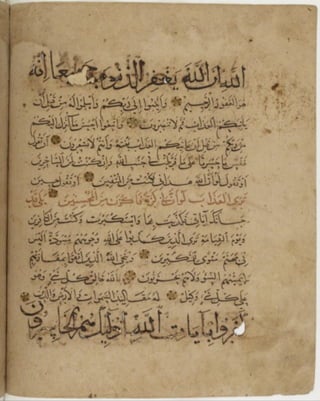 الله ان الله يغفر الذنوب جميعا انه
هو الغفور الرحيم وانيبوا الى ربكم واسلموا له من قبل ان
ياتيكم العذاب ثم لا تنصرون واتبعوا احسن ما انزل اليكم
من ربكم من قبل ان ياتيكم العذاب بغتة وانتم لا تشعرون ان تقول
نفس يا حسرتا على ما فرطت في جنب الله وان كنت لمن الساخرين
او تقول لو ان الله هداني لكنت من المتقين او تقول حين
ترى العذاب لو ان لي كرة فاكون من المحسنين بلى قد
جاءتك اياتي فكذبت بها واستكبرت وكنت من الكافرين
ويوم القيامة ترى الذين كذبوا على الله وجوههم مسودة اليس
في جهنم مثوى للمتكبرين وينجي الله الذين اتقوا بمفازتهم
لا يمسهم السوء ولا هم يحزنون الله خالق كل شيء وهو
على كل شيء وكيل له مقاليد السموات والارض والذين
كفروا بايات الله اولئك هم الخاسرون